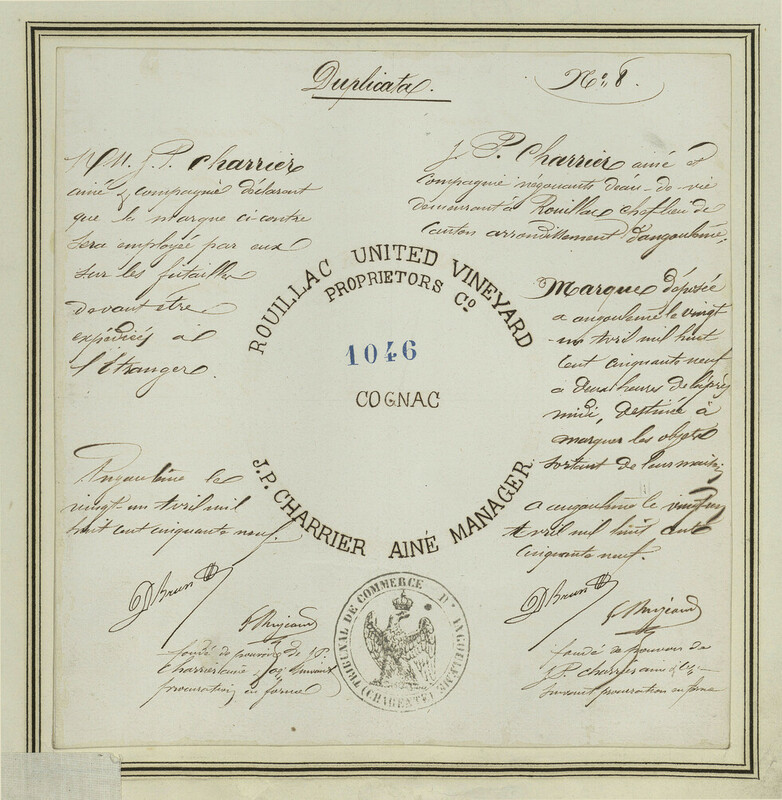 Duplicata.
No. 8.
MM. J. P. Charrier
ainé & compagnie déclarent
que la marque ci-contre
sera employée par eux
sur les futailles
devant être
expédiés à
l'Etranger
Angoulême le
vingt-un Avril mil
huit cent cinquante neuf.
D Brun
fondé de pouvoirs de J. P.
Charrier ainé & Cie suivant
procuration en forme
ROUILLAC UNITED VINEYARD
PROPRIETORS Co
1046
COGNAC
J.P. CHARRIER AINÉ MANAGER
TRIBUNAL DE COMMERCE D'ANGOULEME
(CHARENTE)
J. P. Charrier ainé &
Compagnie négociants d'eau-de-vie
demeurant à Rouillac chef lieu de
Canton arrondissement d'angoulême,
Marque déposée
a angoulême le vingt
-un Avril mil huit
cent cinquante neuf
à deux heures de l'après
midi, destinée à
marquer les objets
sortant de leur maison
a angoulême le vingt un
Avril mil huit cent
cinquante neuf.
D Brun
fondé de pouvoirs de
J. P. Charrier ainé & Cie
suivant procuration en forme